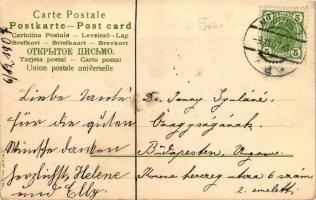 Carte Postale
Postkarte—Post card
Cartolina Postale — Levelező-Lap
Brefkort — Briefkaart — Brevkort
ОТКРЫТОЕ ПИСЬМО.
Tarjeta postal — Carto postal
Union postale universelle
6/12 1907
Liebe
für die guten
Wünsche danken
herzlichst, Helene
und Elly.
Dr. Gyuláné
Nagyságának.
Budapesten, Ungarn
herczeg utcza 6 szám
2. emelett.
5
5